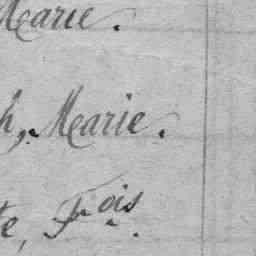 Marie.
h, Marie.
te, Fois.